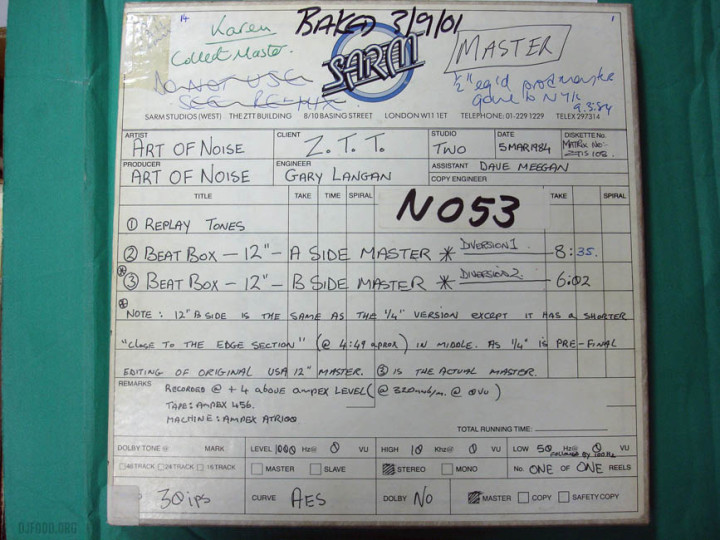 Karen
BAKED 3/9/01
Collect Master.
MASTER
DO NOT USE
SEE REMIX
SARM
1/2" eq'd prod master
gone to N.Y.
9.3.84
SARM STUDIOS (WEST) THE ZTT BUILDING 8/10 BASING STREET LONDON W11 1ET TELEPHONE: 01-229 1229 TELEX 297314
ARTIST ART OF NOISE
CLIENT Z.T.T.
STUDIO TWO
DATE 5 MAR 1984
DISKETTE No. MATRIX No:- ZTIS 108.
PRODUCER ART OF NOISE
ENGINEER GARY LANGAN
ASSISTANT DAVE MEEGAN
COPY ENGINEER
TITLE TAKE TIME SPIRAL TAKE SPIRAL
NO53
① REPLAY TONES
② BEAT BOX — 12" — A SIDE MASTER * DIVERSION 1 — 8:35.
③ BEAT BOX — 12" — B SIDE MASTER * DIVERSION 2 — 6:02
NOTE : 12" B SIDE IS THE SAME AS THE 1/4" VERSION EXCEPT IT HAS A SHORTER
"CLOSE TO THE EDGE SECTION" (@ 4:49 aprox) IN MIDDLE. AS 1/4" IS PRE-FINAL
EDITING OF ORIGINAL USA 12" MASTER. ③ IS THE ACTUAL MASTER.
REMARKS RECORDED @ +4 above AMPEX LEVEL (@ 320nwb/m. @ 0VU)
TAPE : AMPEX 456.
MACHINE : AMPEX ATR100
TOTAL RUNNING TIME:
DOLBY TONE @ MARK LEVEL 1000 Hz@ 0 VU HIGH 10 KHz@ 0 VU LOW 50 Hz@ 0 VU
FOLLOWED BY
48 TRACK 24 TRACK 16 TRACK MASTER SLAVE STEREO MONO No. ONE OF ONE REELS
30 ips CURVE AES DOLBY NO MASTER COPY SAFETY COPY
DJFOOD.ORG